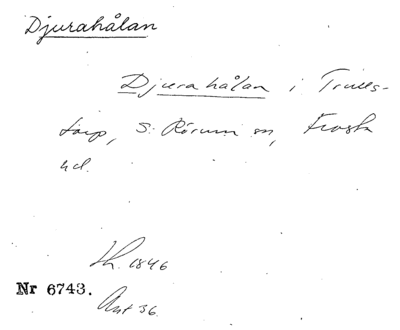 Djurahålan
Djurahålan i Trulls-
torp, S. Rörum sn, Frosta
hd.
Lh. 1846
Nr 6743.
Ant 36.